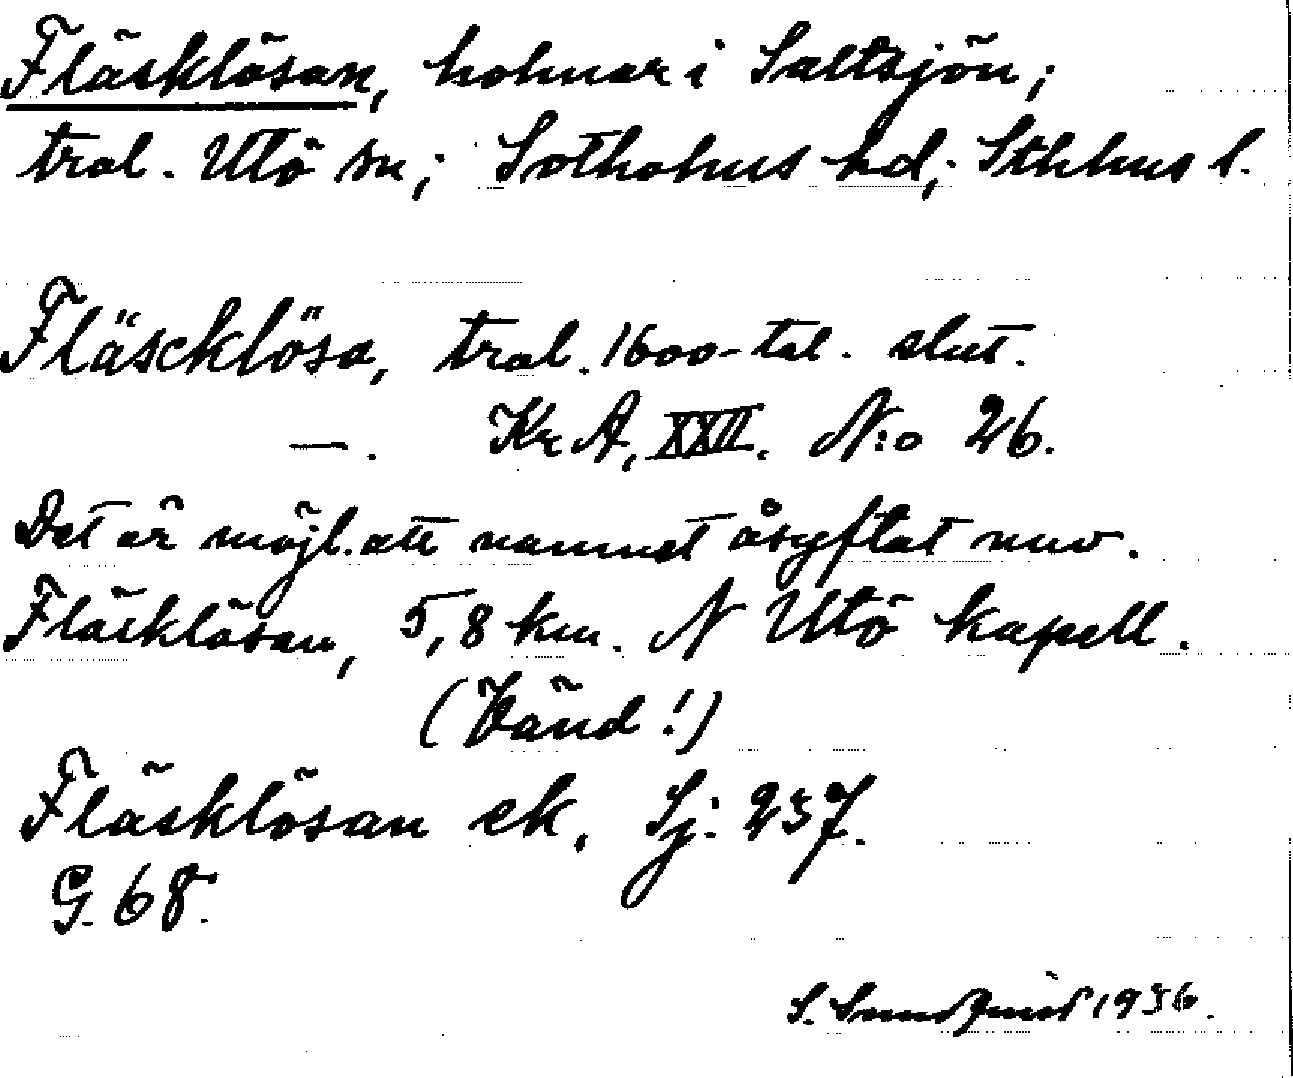 Fläsklösan, holmar i Saltsjön;
tral. Utö sn; Sotholms hd; Sthlms l.
Fläscklösa, tral. 1600-tal. slut.
—. Kr A, XXII. N:o 26.
Det är möjl. att namnet åsyftat nuv.
Fläsklösan, 5,8 km. N Utö kapell.
(Vänd!)
Fläsklösan ek. Sj: 237.
G. 68.
S. Sundquist 1936.